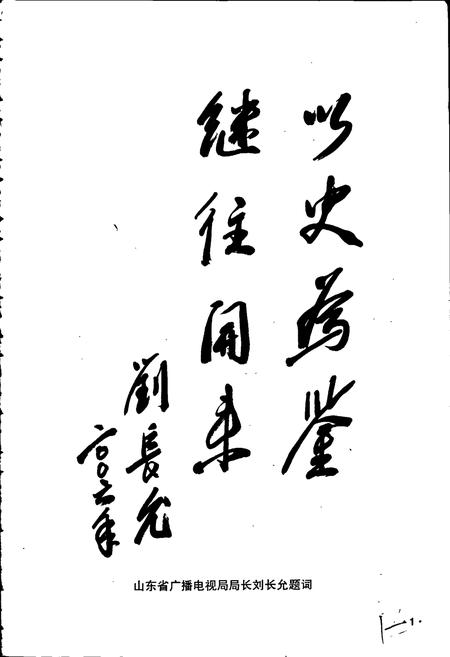 以史为鉴
继往开来
劉長允
二〇〇六年
山东省广播电视局局长刘长允题词